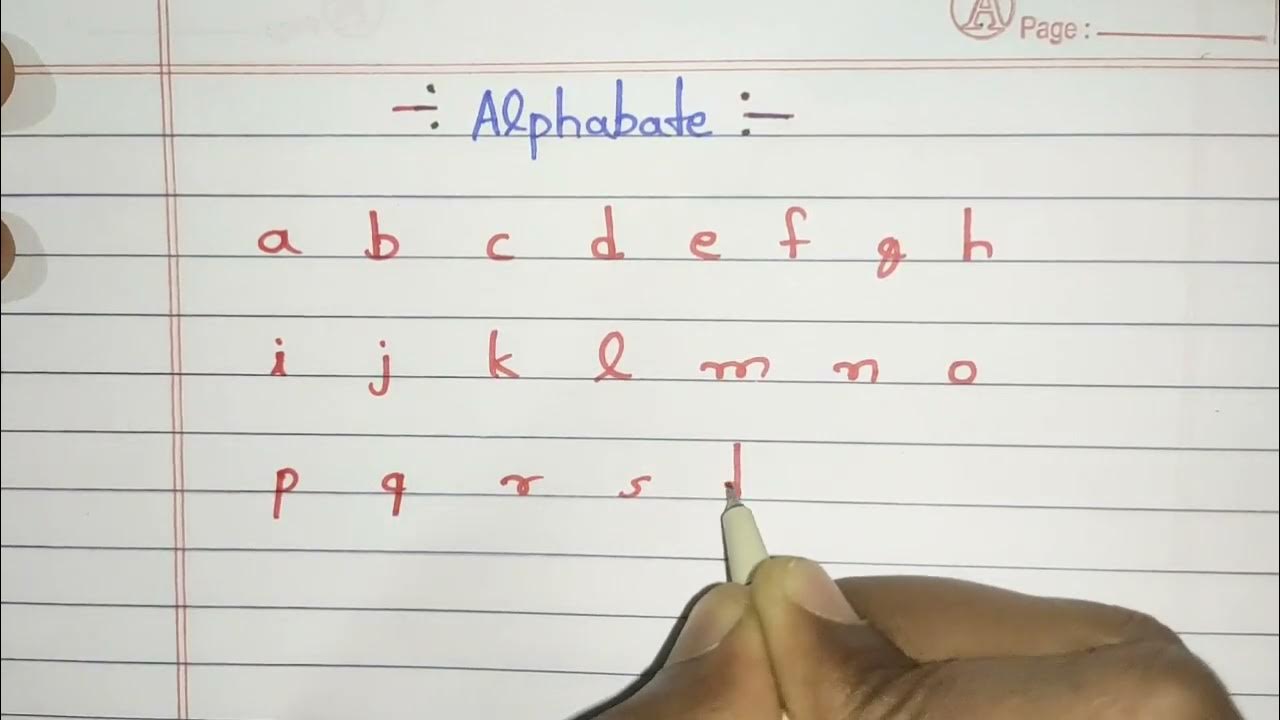 A Page :
-: Alphabate :-
a b c d e f g h
i j k l m n o
p q r s